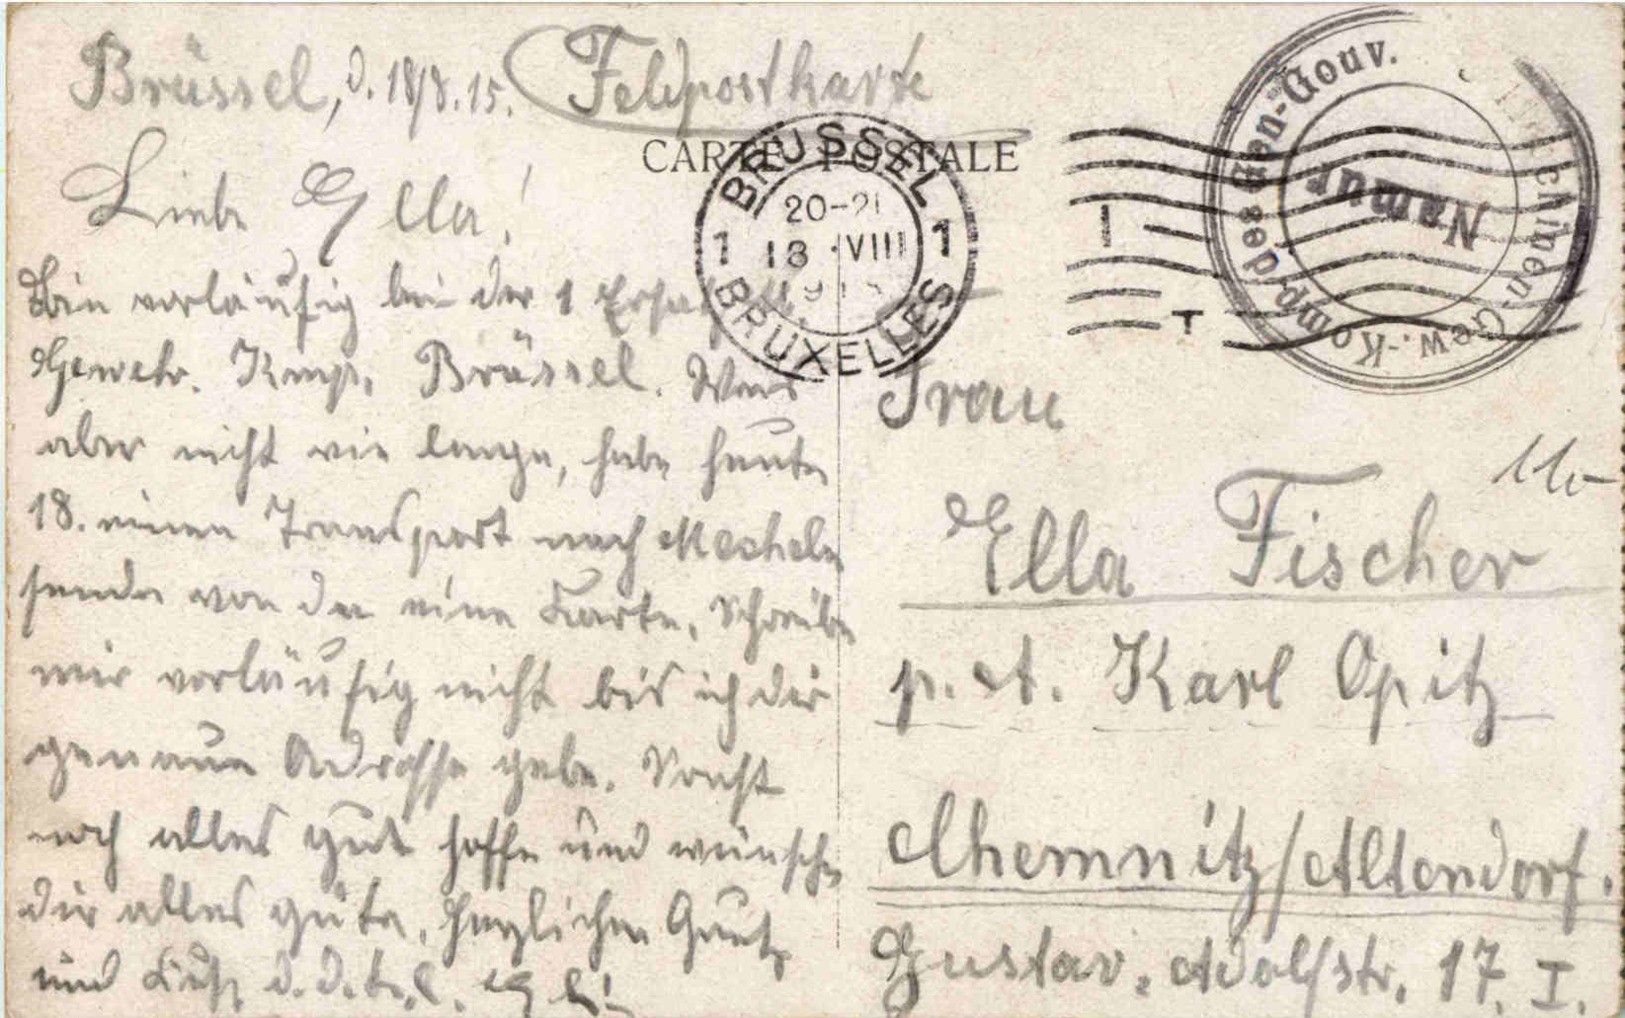 Brüssel, d. 18/8.15.
Feldpostkarte
CARTE POSTALE
BRUSSEL
20-21
18 ·VIII
1 1
BRUXELLES
Namur
Gew.-Komp. des Gen-Gouv.
Liebe Ella!
Bin vorläufig bei der 1 Ersatz
Gewehr. Komp. Brüssel. Weis
aber nicht wie lange, habe heute
18. einen Transport nach Mecheln
sende von da eine Karte. Schreibe
mir vorläufig nicht bis ich dir
genaue Adresse gebe. Sonst
noch alles gut hoffe und wünsche
dir alles gute. Herzlichen Gruß
und Kuß d. d. l.
Frau
Ella Fischer
p. A. Karl Opitz
Chemnitz/Altendorf.
Gustav. Adolfstr. 17. I.